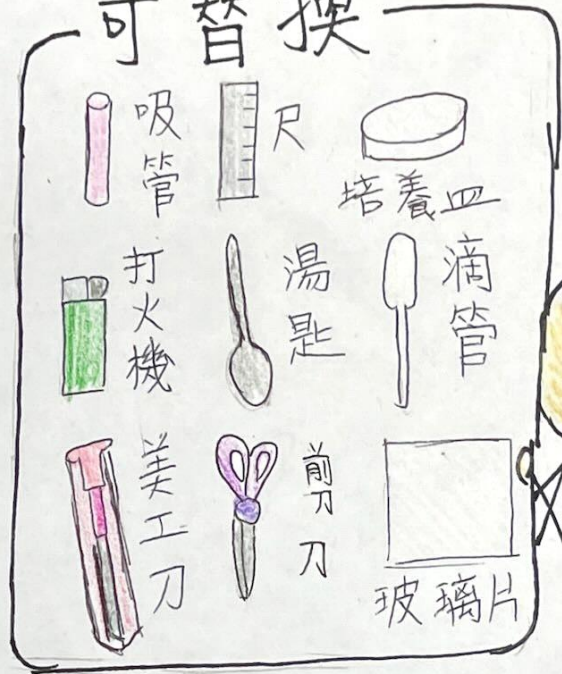 可替換
吸管
尺
培養皿
打火機
湯匙
滴管
美工刀
剪刀
玻璃片